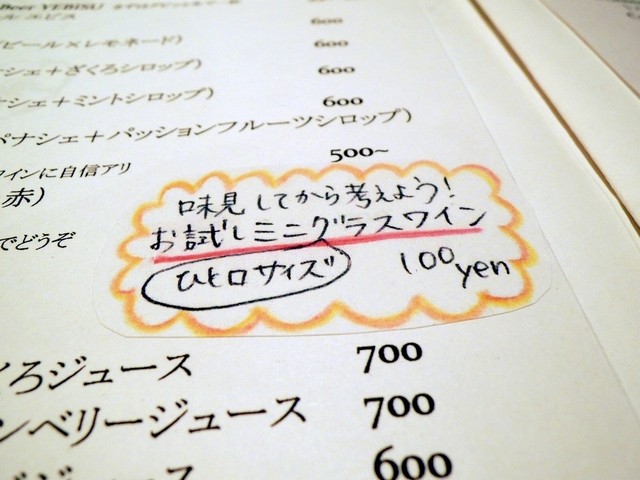 Beer YEBISU
600
ビール×レモネード)
600
シェ+ざくろシロップ)
600
シェ+ミントシロップ)
600
パナシェ+パッションフルーツシロップ)
500~
ワインに自信アリ
赤)
でどうぞ
味見してから考えよう!
お試しミニグラスワイン
ひと口サイズ
100yen
くろジュース 700
ンベリージュース 700
ジュース 600